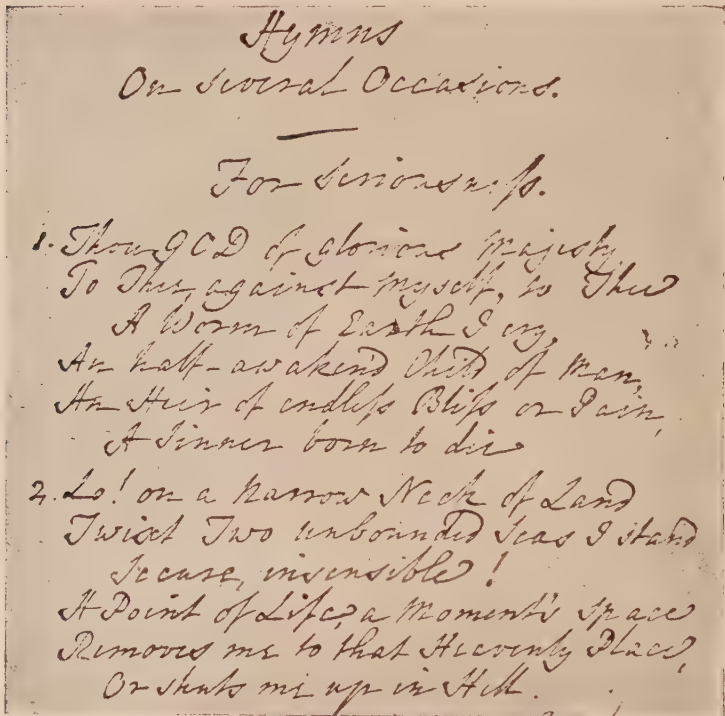 Hymns
On several Occasions.
For seriousness.
1. Thou GOD of glorious Majesty,
To Thee, against myself, to Thee
A Worm of Earth I cry,
An half-awaken'd Child of Man,
An Heir of endless Bliss or Pain,
A Sinner born to die
2. Lo! on a narrow Neck of Land
Twixt Two unbounded Seas I stand
Secure, insensible!
A Point of Life, a Moment's space
Removes me to that Heavenly Place,
Or shuts me up in Hell.